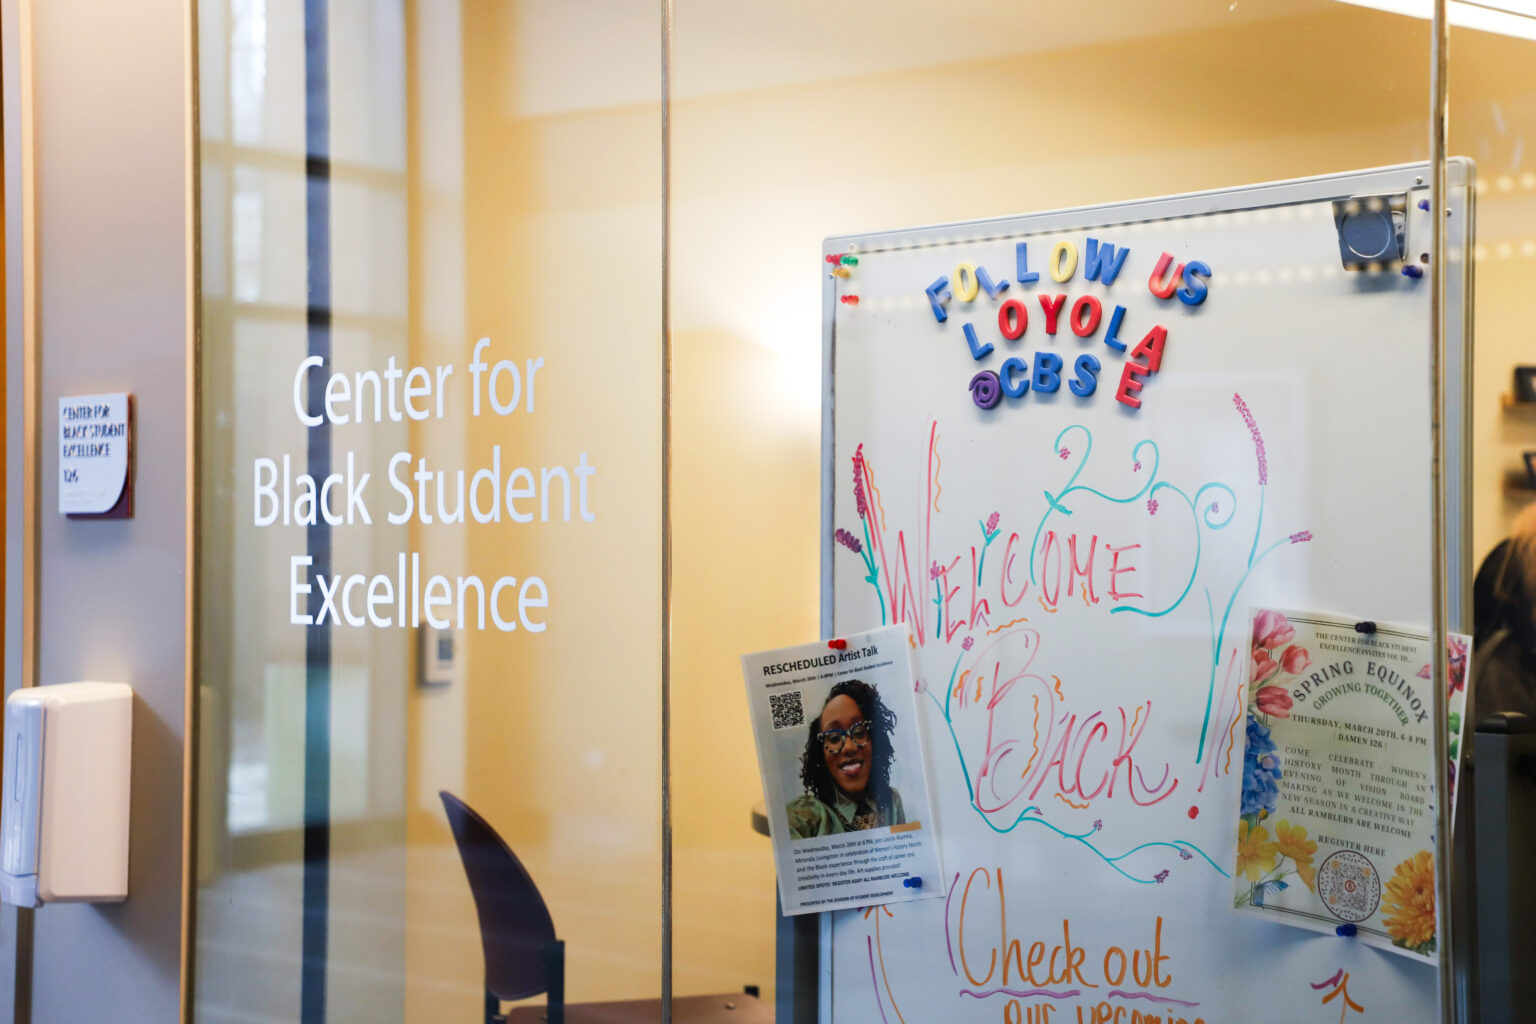 CENTER FOR
BLACK STUDENT
EXCELLENCE
126
Center for
Black Student
Excellence
FOLLOW US
LOYOLA
@CBSE
WELCOME
BACK!
RESCHEDULED Artist Talk
Wednesday, March 26th | 6-8PM | Center for Black Student Excellence
On Wednesday, March 26th at 6 PM, join Loyola Alumna,
Miranda Livingston in celebration of Women's History Month
and the Black experience through the craft of career and
creativity in every day life. Art supplies provided!
LIMITED SPOTS! REGISTER ASAP! ALL RAMBLERS WELCOME
PRESENTED BY THE DIVISION OF STUDENT DEVELOPMENT
THE CENTER FOR BLACK STUDENT
EXCELLENCE INVITES YOU TO...
SPRING EQUINOX
GROWING TOGETHER
THURSDAY, MARCH 20TH, 6-8 PM
| DAMEN 126 |
COME CELEBRATE WOMEN'S
HISTORY MONTH THROUGH AN
EVENING OF VISION BOARD
MAKING AS WE WELCOME IN THE
NEW SEASON IN A CREATIVE WAY
ALL RAMBLERS ARE WELCOME
REGISTER HERE
Check out
our upcoming